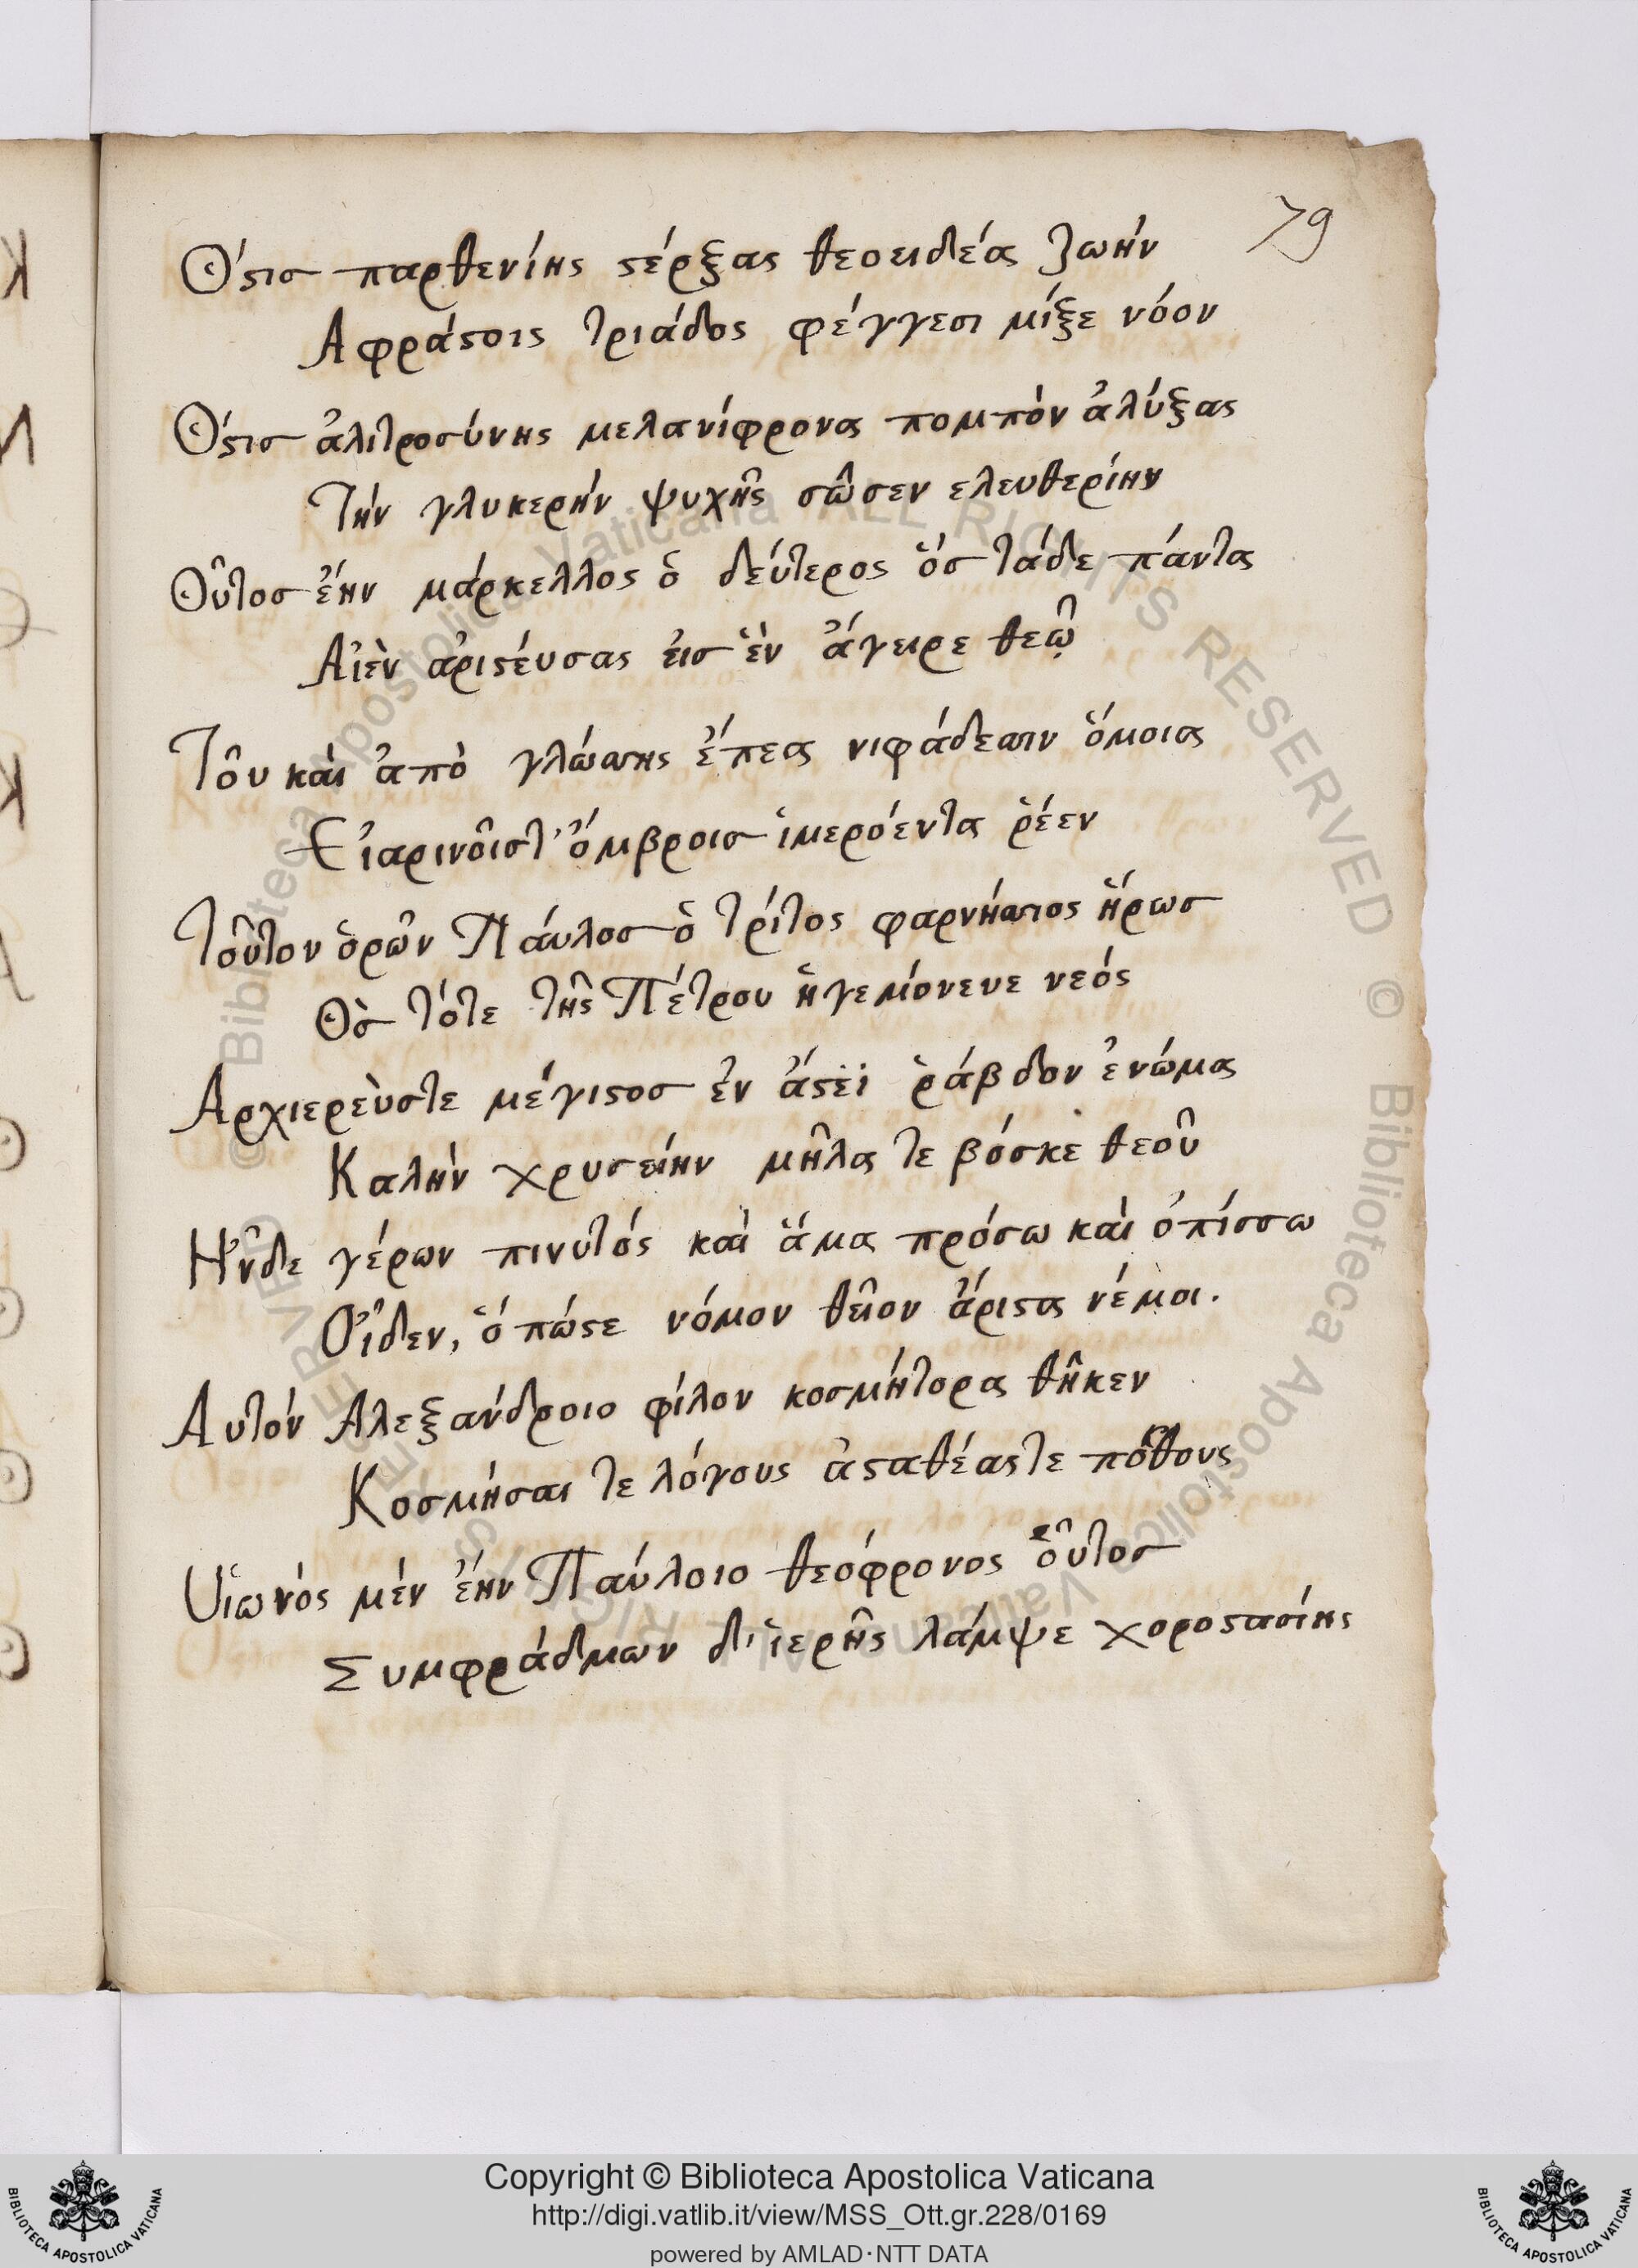 79
Ὅστις παρθενίης στέρξας θεοειδέα ζωήν
Αφράστοις τριάδος φέγγεσι μίξε νόον
Ὅστις ἀλιτροσύνης μελανίφρονα πομπὸν ἀλύξας
Τήν γλυκερήν ψυχῆς σῶσεν ελευθερίην
Οὗτος ἔην μάρκελλος ὁ δεύτερος ὅσ τάδε πάντα
Αἰὲν ἀριστέυσας ἐισ ἓν ἄγειρε θεῷ
Τοῦ καὶ ἀπὸ γλώσσης ἔπεα νιφάδεσσιν ὅμοια
Εἰαρινοῖσ τ' ὄμβροισ ἱμερόεντα ῥέεν
Τοῦτον ὁρῶν Πάυλοσ ὁ τρίτος φαρνήσιος ἥρωσ
Ὃσ τότε τῆς Πέτρου ἡγεμόνευε νεός
Αρχιερεὺς τε μέγιστοσ ἐν ἄστεϊ ῥάβδον ἐνώμα
Καλὴν χρυσείην μῆλα τε βόσκε θεοῦ
Ἦν δε γέρων πινυτός καὶ ἅμα πρόσω καὶ ὀπίσσω
Οἶδεν, ὅπώστε νόμον θεῖον ἄριστα νέμοι.
Αυτόν Αλεξάνδροιο φίλον κοσμήτορα θῆκεν
Κοσμήσαι τε λόγους ἀσταθέας τε πόθους
Υἱωνός μέν ἔην Πάυλοιο θεόφρονος οὗτος
Συμφράδμων δ' ἱερῆς λάμψε χοροστασίης
Copyright © Biblioteca Apostolica Vaticana
http://digi.vatlib.it/view/MSS_Ott.gr.228/0169
powered by AMLAD·NTT DATA
BIBLIOTECA APOSTOLICA VATICANA
BIBLIOTECA APOSTOLICA VATICANA